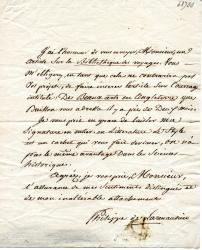 J'ai l'honneur de vous envoyer, Monsieur, un
article sur la Bibliothèque des voyages. Vous
m'obligerez, en tant que cela ne contrariera pas
vos projets, de faire insérer l'article sur l'ouvrage
intitulé, Des Beaux arts en Angleterre que
vous adressa il y a près de deux mois.
Je vous prie en grace de laisser ma
signature en entier, en Littérature le Style
est un cachet qui vous fait deviner, on n'a
pas le même avantage dans les Sciences
historiques.
agréez, je vous prie, Monsieur,
l'assurance de mes sentiments distingués et
de mon inaltérable attachement
Philippe de